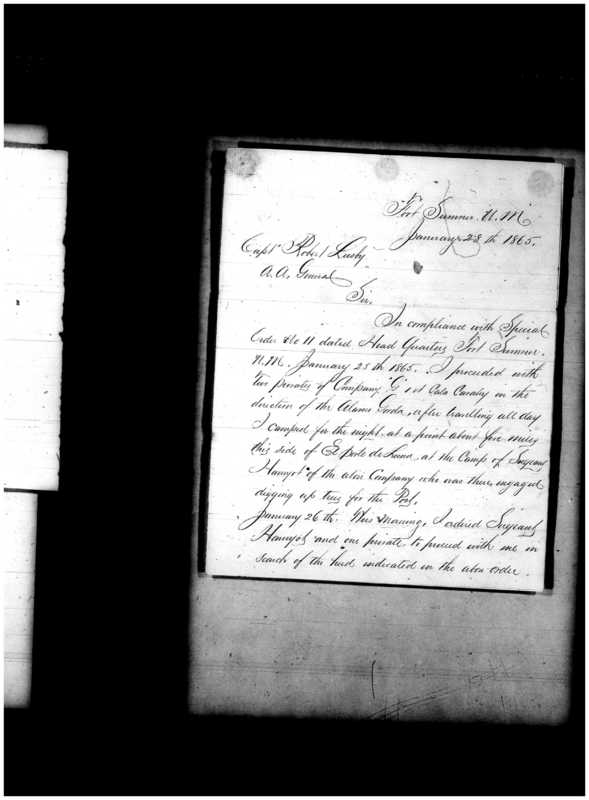 Fort Sumner. N. M.
January 28 th 1865.
Capt Robert Lusby
A. A. General
Sir,
In compliance with Special
Order No 11 dated Head Quarters Fort Sumner.
N. M. January 25 th 1865. I proceeded with
two privates of Company "G" 1 st Cala Cavalry in the
direction of the Alamo Gordo, after travelling all day
I camped for the night, at a point about five miles
this side of de Luna, at the Camp of Sergeant
of the above Company who was there, engaged
digging up trees for the Post.
January 26 th. This Morning, I ordered Sergeant
and one private to proceed with me in
search of the herd indicated in the above order.